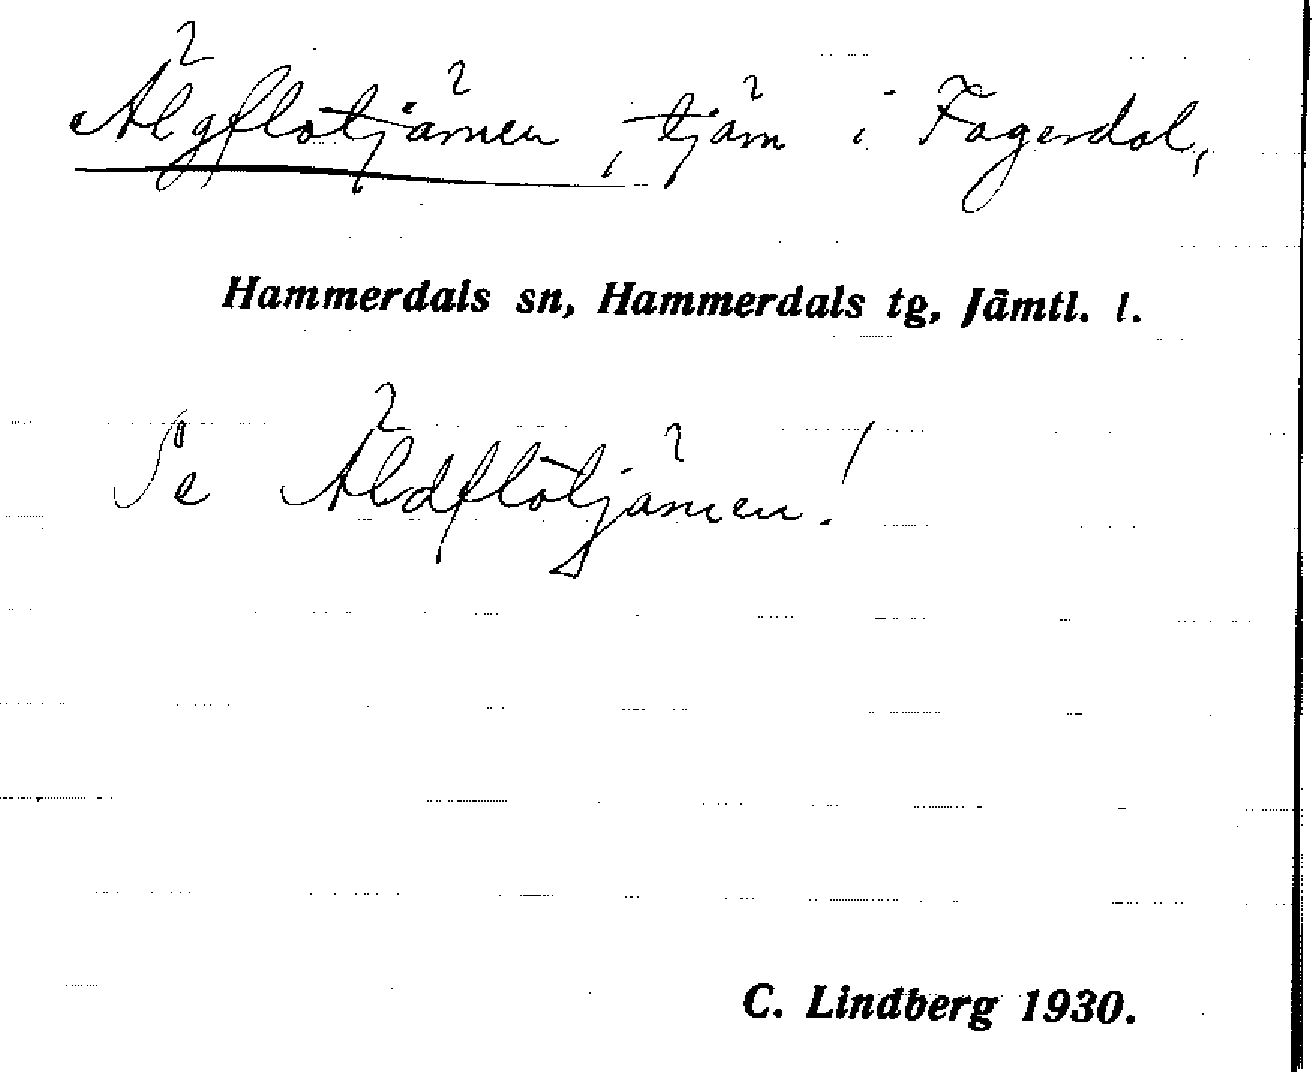 Älgflötjämen, tjäm i Fagerdal,
Hammerdals sn, Hammerdals tg, Jämtl. l.
Se Äldflötjämen!
C. Lindberg 1930.